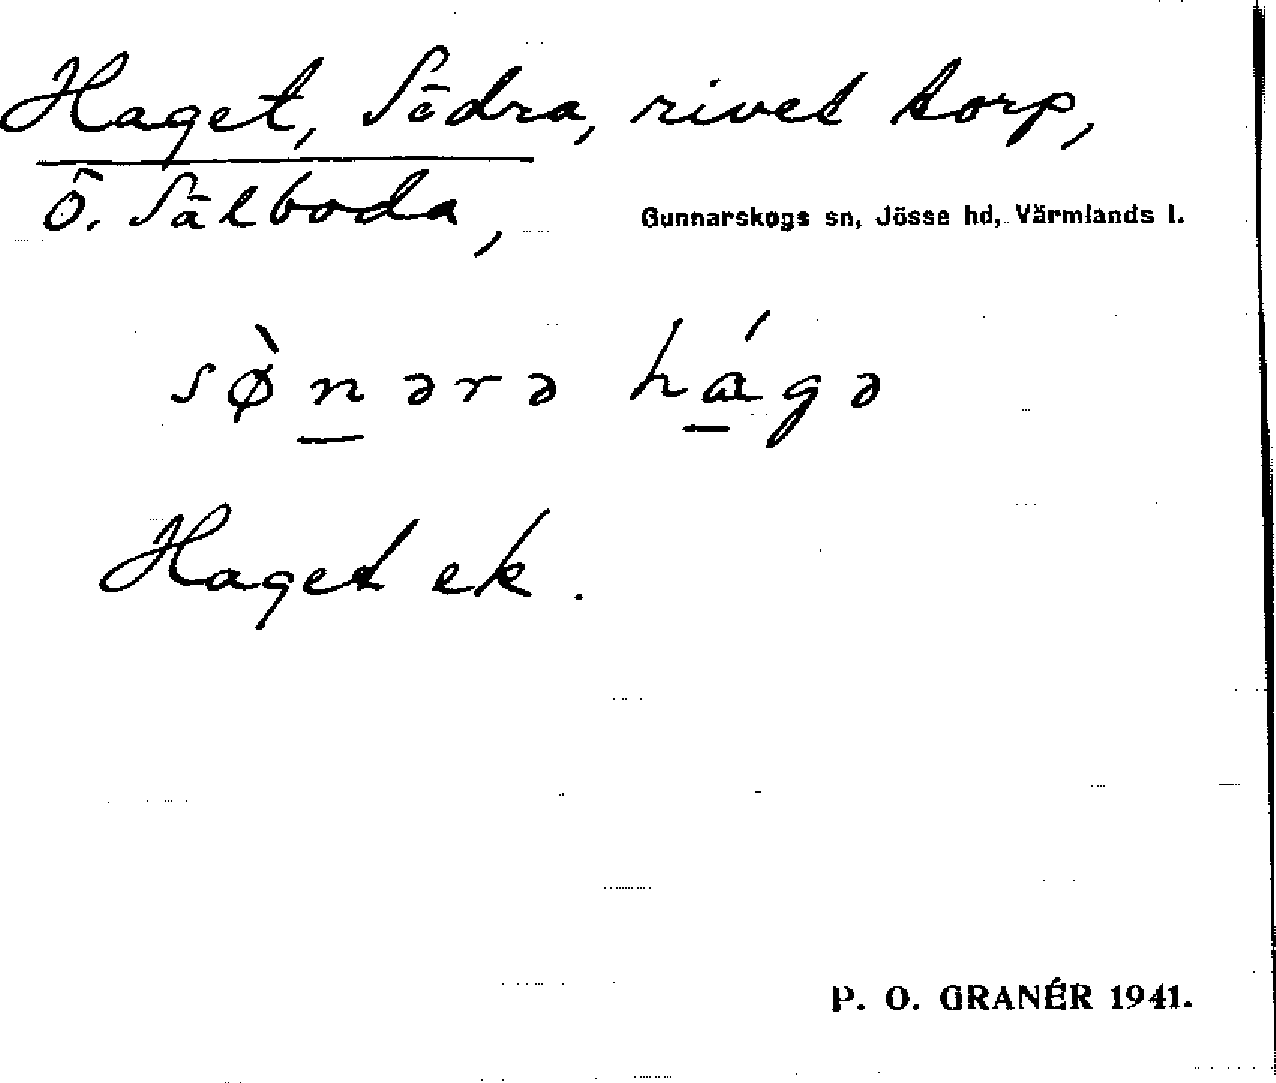 Haget, Södra, rivet torp,
Ö. Sälboda,
Gunnarskogs sn, Jösse hd, Värmlands l.
sø̀nərə hágə
Haget ek.
P. O. GRANÉR 1941.